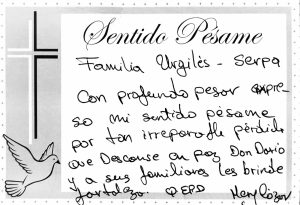 Sentido Pésame
Familia Urgilés - Serpa
Con profundo pesar expre-
so mi sentido pésame
por tan irreparable pérdida
que Descanse en paz Don Dario
y a sus familiares les brinde
fortaleza. QEPD